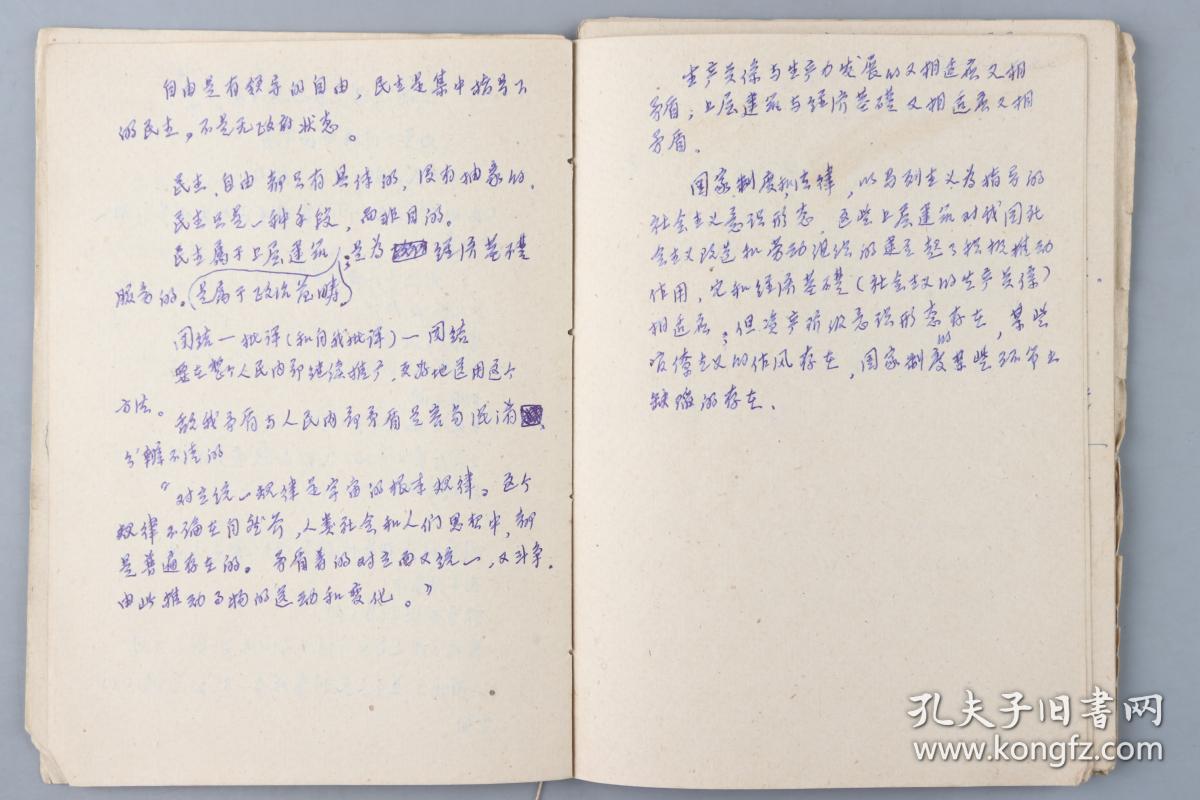 自由是有领导的自由，民主是集中指导下
的民主，不是无政府状态。
民主、自由都只有具体的，没有抽象的，
民主只是一种手段，而非目的。
民主属于上层建筑，是为经济基礎
服务的。是属于政治范畴，
团结一批评（和自我批评）一团结
要在整个人民内部继续推广，更好地运用这个
方法。
敌我矛盾与人民内部矛盾是容易混淆、
分辨不清的
“对立统一规律是宇宙的根本规律。这个
规律不论在自然界，人类社会和人们思想中，都
是普遍存在的。矛盾着的对立面又统一，又斗争，
由此推动事物的运动和变化。”
生产关係与生产力发展的又相适应又相
矛盾；上层建筑与经济基礎又相适应又相
矛盾.
国家制度和法律，以马列主义为指导的
社会主义意识形态，这些上层建筑对我国社
会主义改造和劳动组织的建立起了积极推动
作用，它和经济基礎（社会主义的生产关係）
相适应；但资产阶级意识形态存在，某些
官僚主义的作风存在，国家制度的某些环节上
缺陷的存在.
孔夫子旧書网
www.kongfz.com